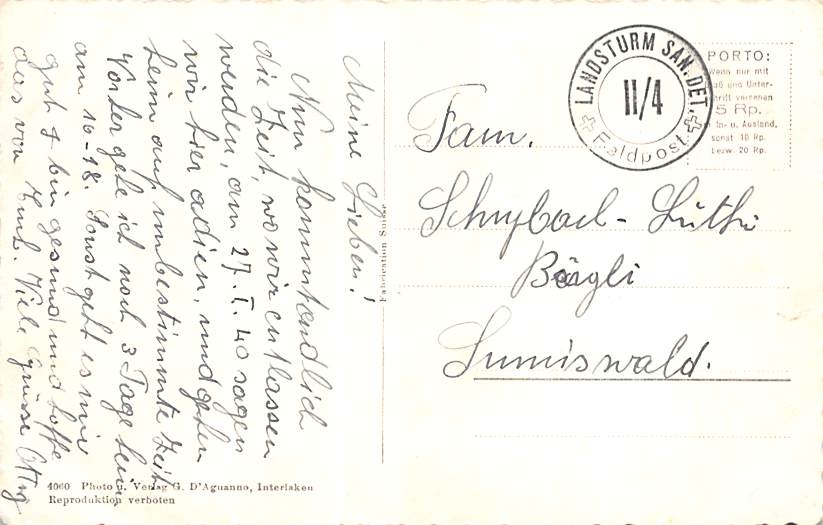 Meine Lieben!
Nun kommt endlich
die Zeit, wo wir entlassen
werden, am 27. I. 40 sagen
wir hier adieu, und gehen
heim auf unbestimmte Zeit
Vorher gehe ich noch 3 Tage heim
am 16-18. Sonst geht es mir
gut & bin gesund und hoffe
das von Euch. Viele Grüsse
4060 Photo u. Verlag G. D'Aguanno, Interlaken
Reproduktion verboten
Fabrication Suisse
LANDSTURM SAN. DET.
II/4
Feldpost
PORTO:
Wenn nur mit
und Unter-
schrift versehen
5 Rp.
In- u. Ausland,
sonst 10 Rp.
bezw. 20 Rp.
Fam.
Lüthi
Bärgli
Sumiswald.